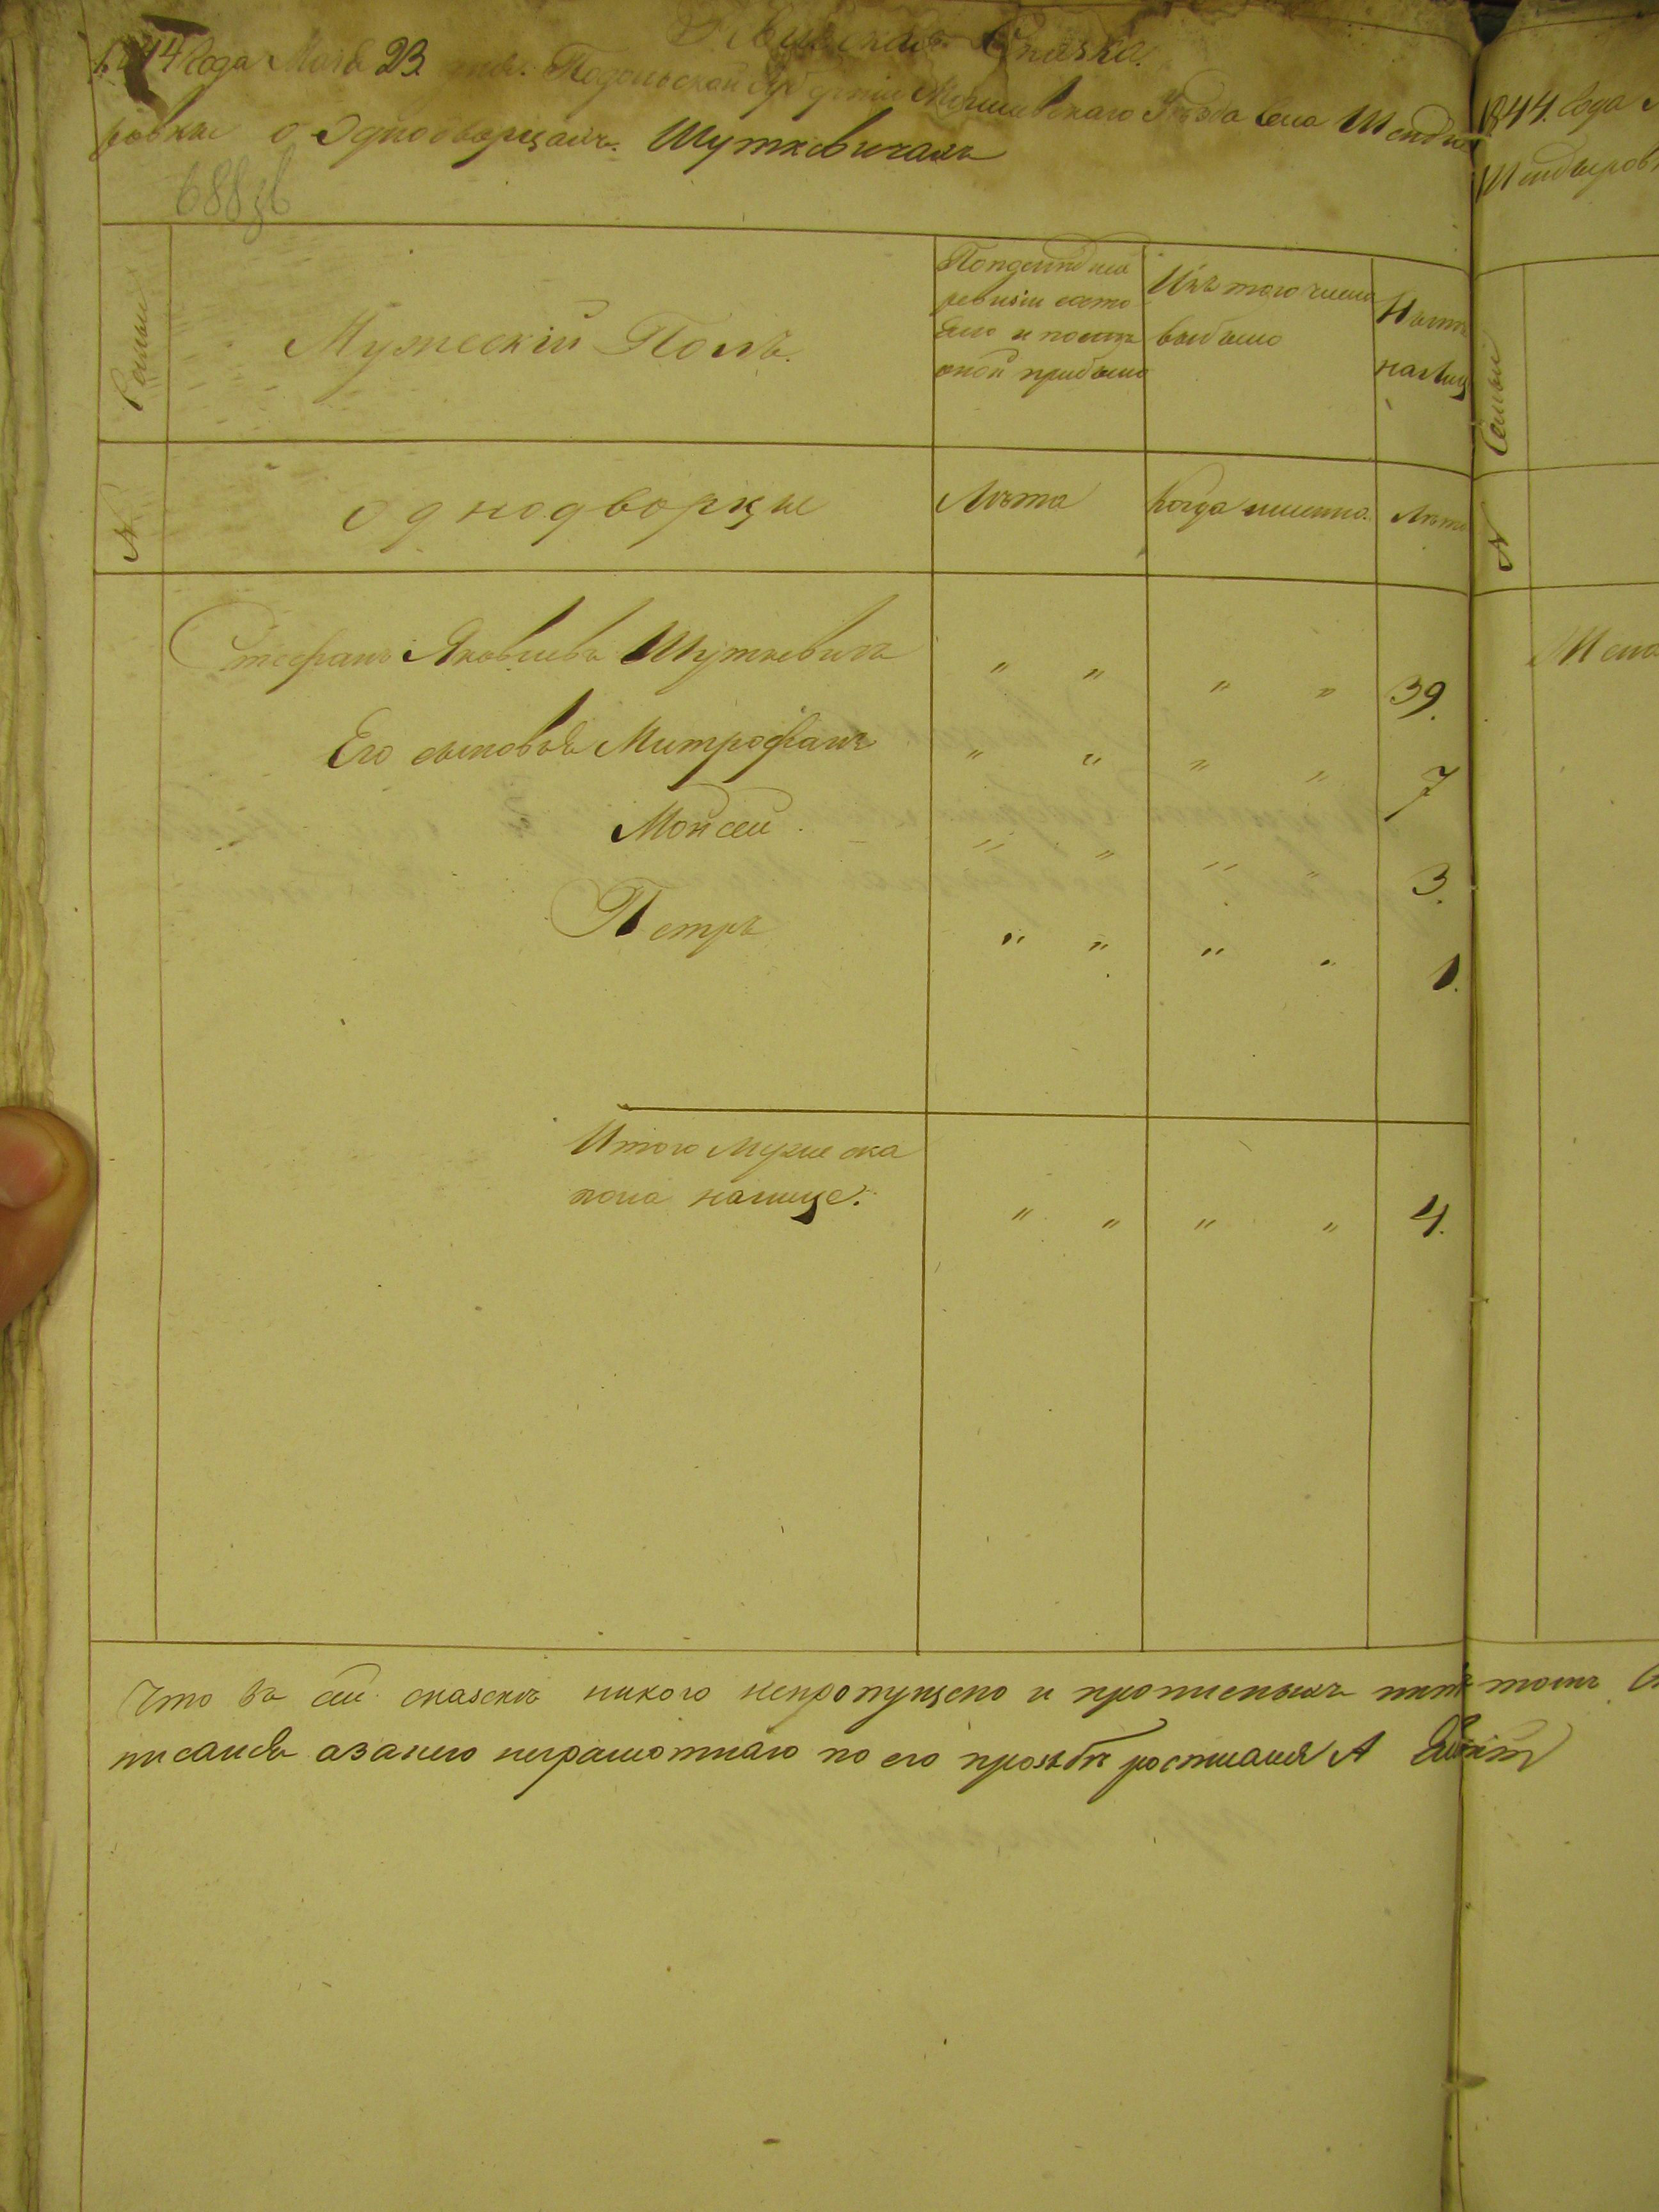 Ревизская Сказка.
1844 Года Маія 23 дня. Подольской Губерніи Могилевскаго Уѣзда Села Шенды
ровки о Однодворцахъ Шуткевичахъ
688
Семьи
Мужескій Полъ.
По послѣдней
ревизіи состо
яло и послѣ
оной прибыло
Изъ того числа
выбыло
Нынѣ
налиц
№
Однодворцы
Лѣта
Когда именно.
Лѣта
Стефанъ Яковлевъ Шуткевичъ " " " " 39.
Его сыновья Митрофанъ " " " " 7
Мойсей " " " " 3.
Петръ " " " " 1.
Итого мужеска
пола налице. " " " " 4.
Что въ сей сказскѣ никого непропущено и прописныхъ нѣтъ томъ
писался азанего неграмотнаго по его прозьбѣ росписался А
1844. Года
Шендыров
Семьи
№